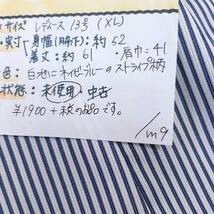 サイズ レディース 13号 (XL)
実寸・身幅(脇下):約52
・着丈:約61 ・肩巾=41
色:白地にネイビーブルーのストライプ柄
状態:未使用・中古
¥1900+税のお品です。
/m9